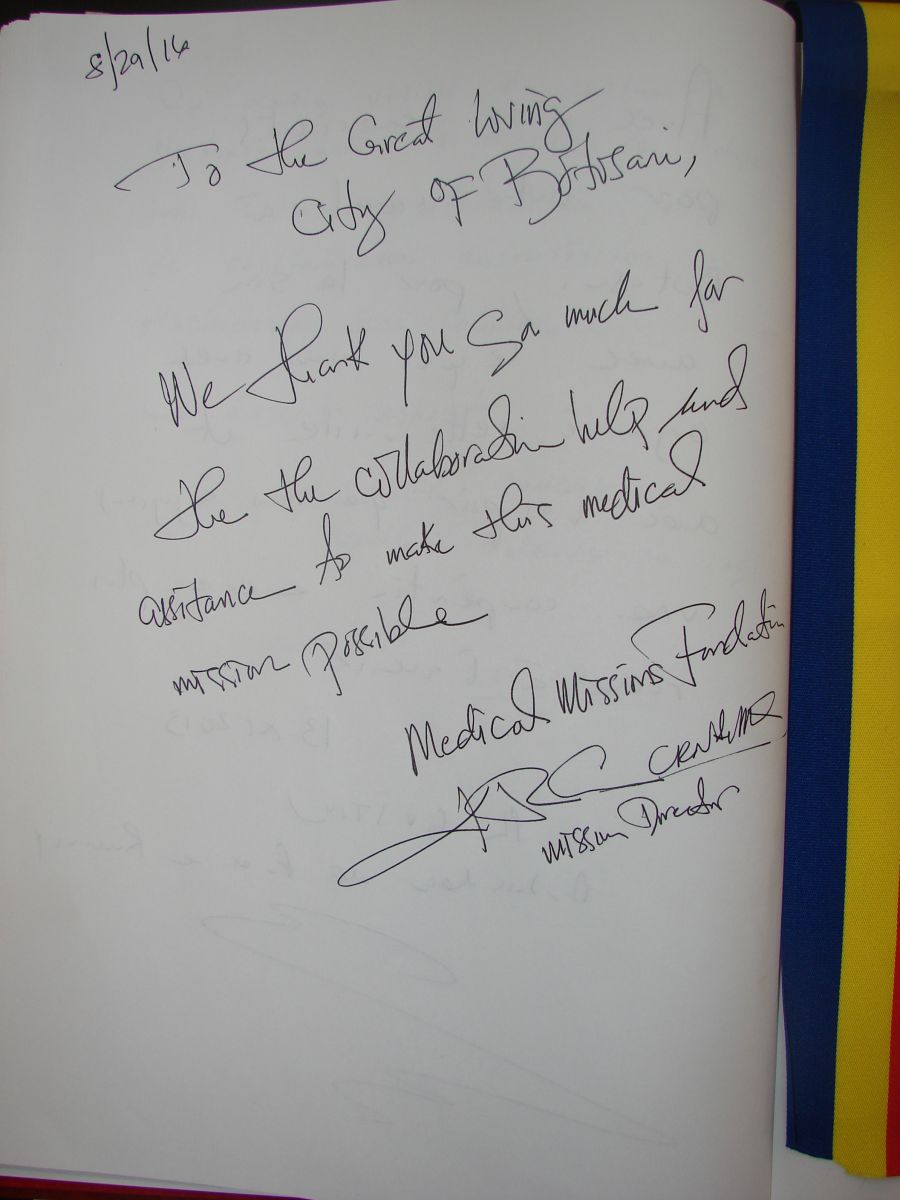 8/29/14
To the Great Loving
City of Botosani,
We thank you so much for
the the collaboration help and
assitance to make this medical
mission possible
Medical Missions Fondation
Mission Director